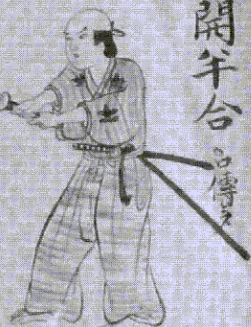 開半合
口傳